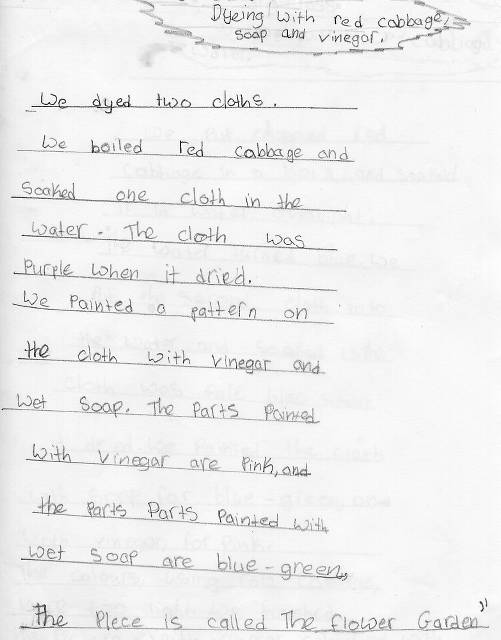 Dyeing with red cabbage,
soap and vinegar.
We dyed two cloths.
We boiled red cabbage and
soaked one cloth in the
water. The cloth was
purple when it dried.
We Painted a pattern on
the cloth with vinegar and
wet soap. The Parts Painted
with vinegar are Pink, and
the Parts Parts Painted with
wet soap are blue-green,
The Piece is called The flower Garden"